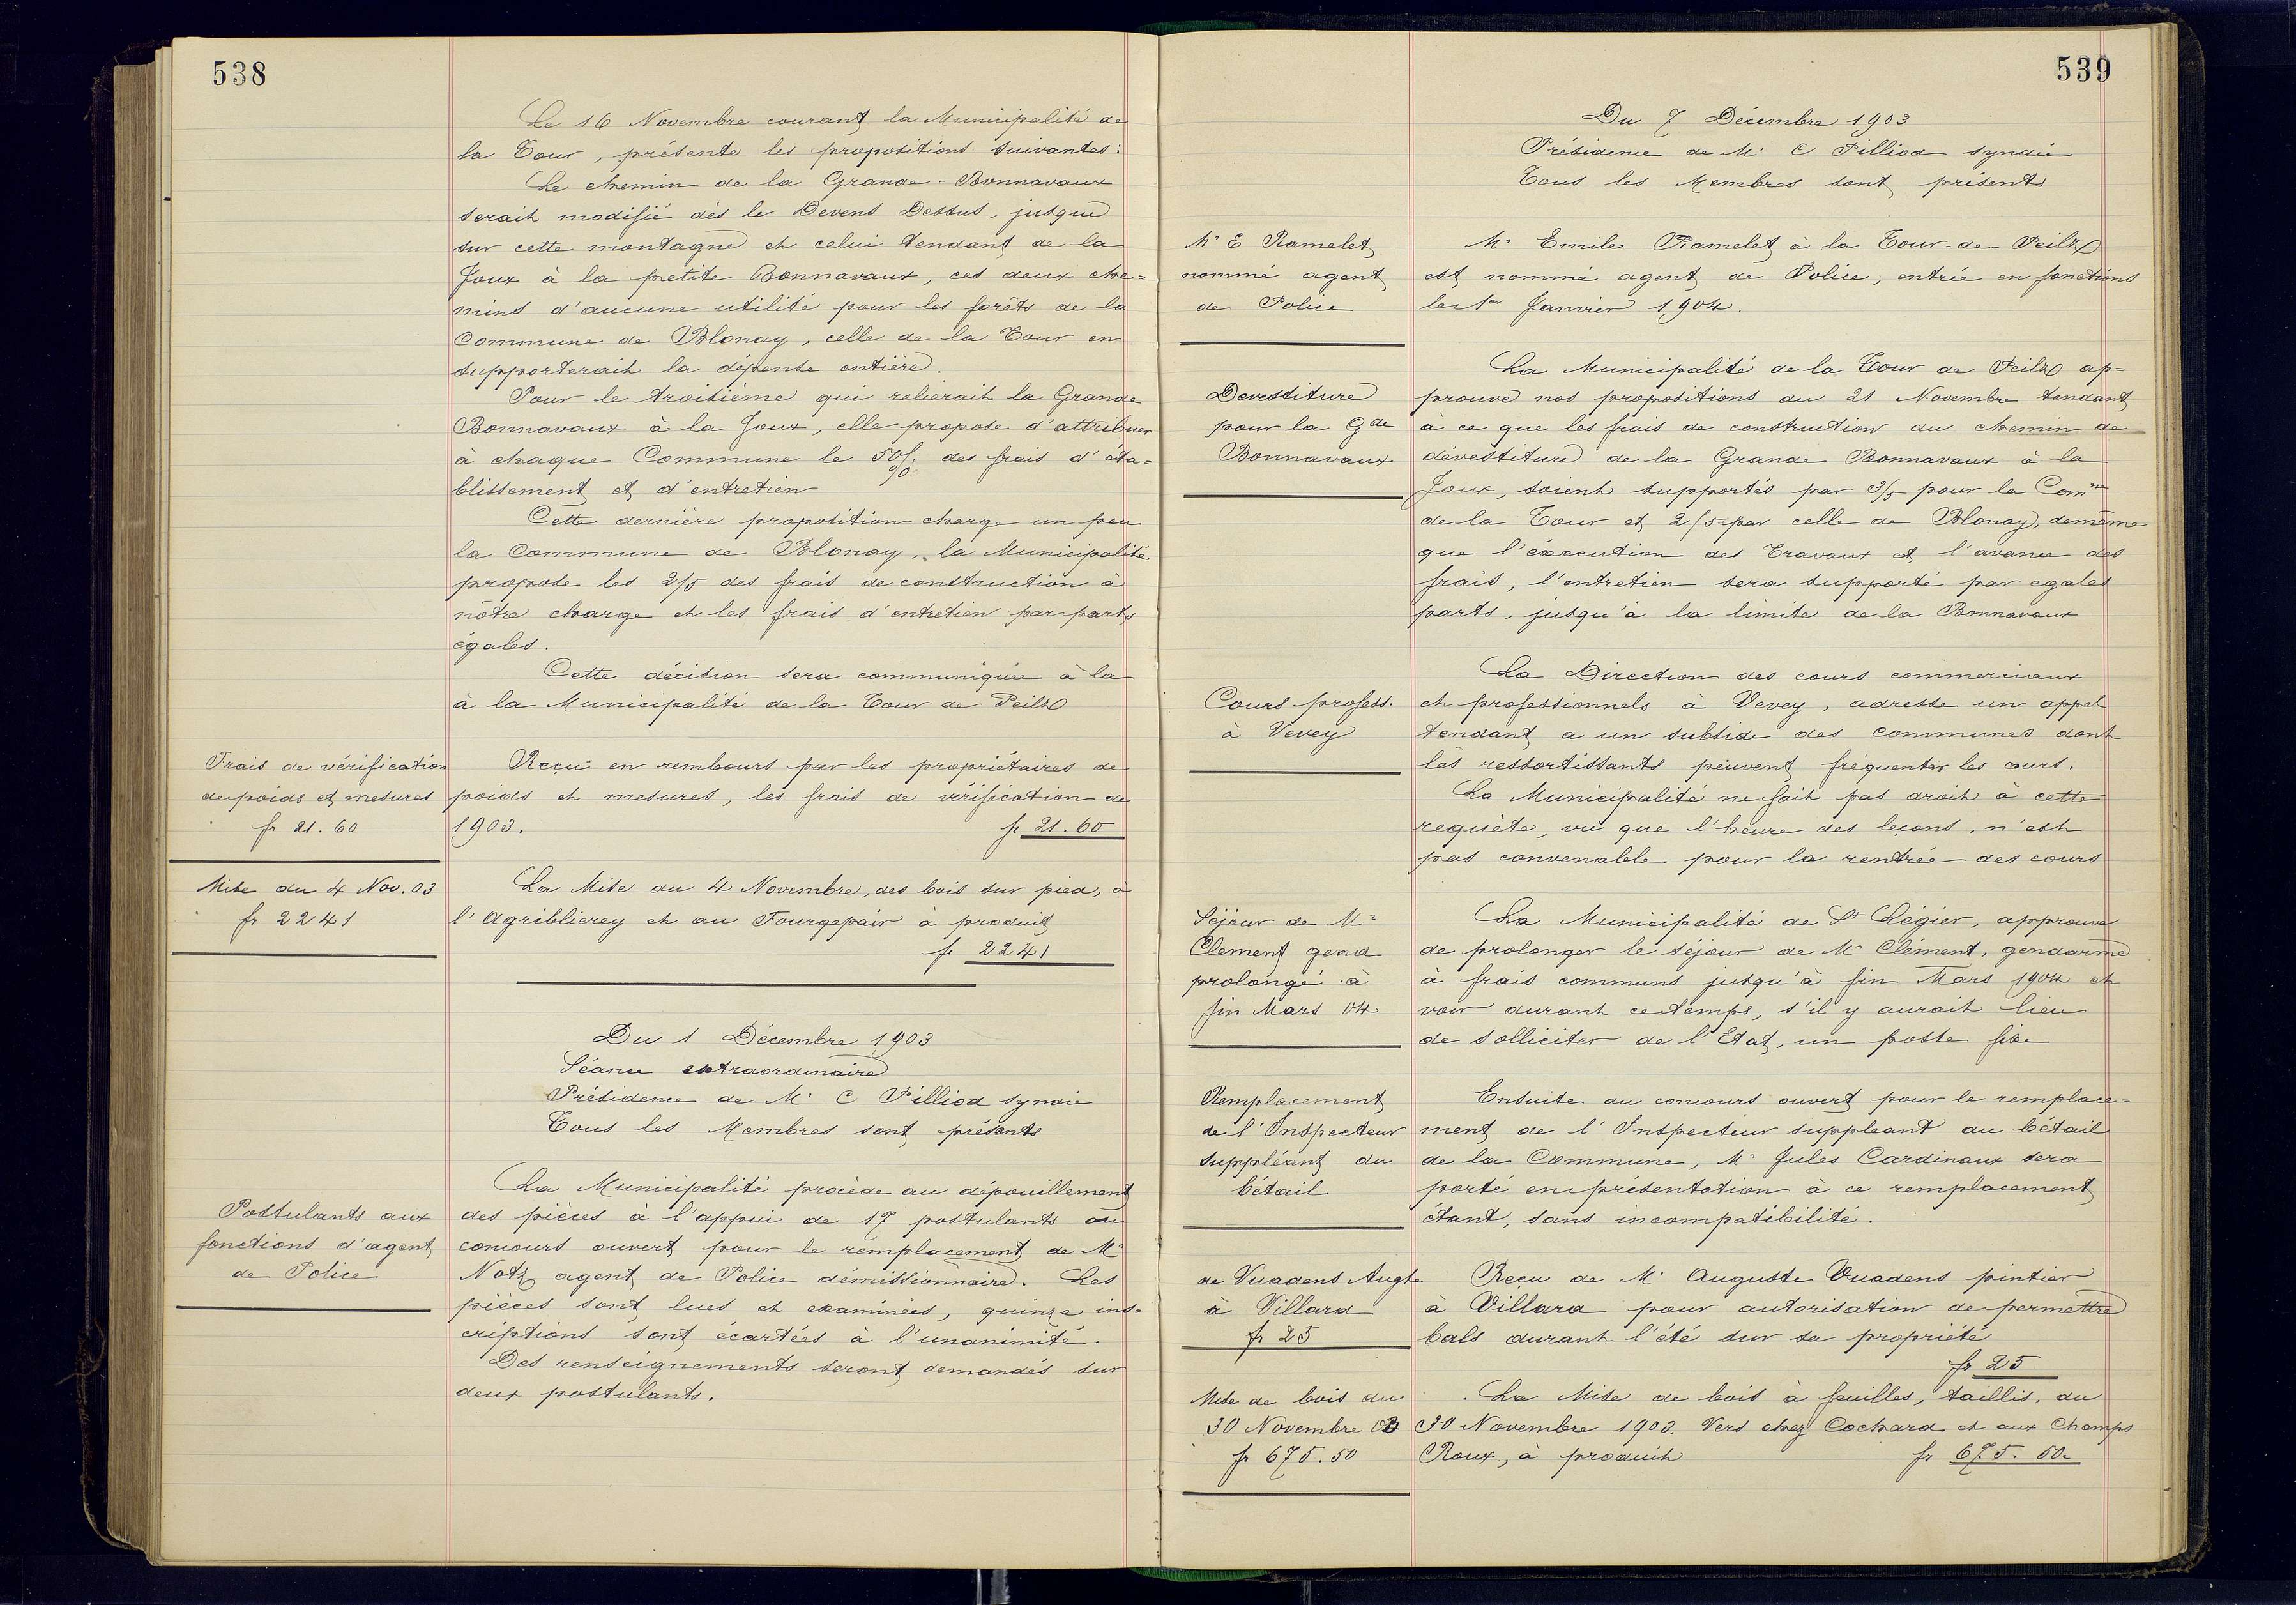 538
Le 16 Novembre courant la Municipalité de
la Tour, présente les propositions suivantes:
Le chemin de la Grande-Bonnavaux
serait modifié dès le Devens Dessus, jusque
sur cette montagne et celui tendant de la
Joux à la petite Bonnavaux, ces deux che=
mins d'aucune utilité pour les forêts de la
Commune de Blonay, celle de la Tour en
supporterait la dépense entière.
Pour le troisième qui relierait la Grande
Bonnavaux à la Joux, elle propose d'attribuer
à chaque Commune le 50% des frais d'éta=
blissement et d'entretien
Cette dernière proposition charge un peu
la Commune de Blonay, la Municipalité
propose les 2/5 des frais de construction à
nôtre charge et les frais d'entretien par parts
égales.
Cette décision sera communiquée à la
à la Municipalité de la Tour de Peilz
Frais de vérification
de poids et mesures
fr 21.60
Reçu en rembours par les propriétaires de
poids et mesures, les frais de vérification de
1903. fr 21.60
Mise du 4 Nov. 03
fr 2241
La Mise du 4 Novembre, des bois sur pied, à
l'Agriblierey et au Fourgepair à produit
fr 2241
Du 1 Décembre 1903
Séance extraordinaire
Présidence de Mr C Pilliod syndic
Tous les Membres sont présents
Postulants aux
fonctions d'agent
de Police
La Municipalité procède au dépouillement
des pièces à l'appui de 17 postulants au
concours ouvert pour le remplacement de Mr
Notz agent de Police démissionnaire. Les
pièces sont lues et examinées, quinze ins=
criptions sont écartées à l'unanimité.
Des renseignements seront demandés sur
deux postulants.
539
Du 7 Décembre 1903
Présidence de Mr C Pilliod syndic
Tous les Membres sont présents
Mr E Ramelet
nommé agent
de Police
Mr Emile Ramelet à la Tour-de-Peilz
est nommé agent de Police, entrée en fonctions
le 1er Janvier 1904.
Devestiture
pour la Gde
Bonnavaux
La Municipalité de la Tour de Peilz ap=
prouve nos propositions du 21 Novembre tendant
à ce que les frais de construction du chemin de
dévestiture de la Grande Bonnavaux à la
Joux, soient supportés par 3/5 pour la Comne
de la Tour et 2/5 par celle de Blonay, de même
que l'éxécution des Travaux et l'avance des
frais, l'entretien sera supporté par egales
parts, jusqu'à la limite de la Bonnavaux
Cours profess.
à Vevey
La Direction des cours commerciaux
et professionnels à Vevey, adresse un appel
tendant a un subside des communes dont
lès ressortissants peuvent fréquenter les cours.
La Municipalité ne fait pas droit à cette
requête, vu que l'heure des leçons, n'est
pas convenable pour la rentrée des cours
Séjour de Mr
Clement gend
prolongé à
fin Mars 04
La Municipalité de St Légier, approuve
de prolonger le séjour de Mr Clément, gendarme
à frais communs jusqu'à fin Mars 1904 et
voir durant ce temps, s'il y aurait lieu
de solliciter de l'Etat, un poste fixe
Remplacement
de l'Inspecteur
suppléant du
bétail
Ensuite du concours ouvert pour le remplace=
ment de l'Inspecteur suppleant du bétail
de la Commune, Mr Jules Cardinaux sera
porté en présentation à ce remplacement
étant, sans incompatibilité.
de Vuadens Augte
à Villard
fr 25
Reçu de Mr Auguste Vuadens pintier
à Villard pour autorisation de permettre
bals durant l'été sur sa propriété
fr 25
Mise de bois du
30 Novembre 03
fr 675.50
La Mise de bois à feuilles, taillis, du
30 Novembre 1903. Vers chez Cochard et aux Champs
Roux, à produit fr 675.50